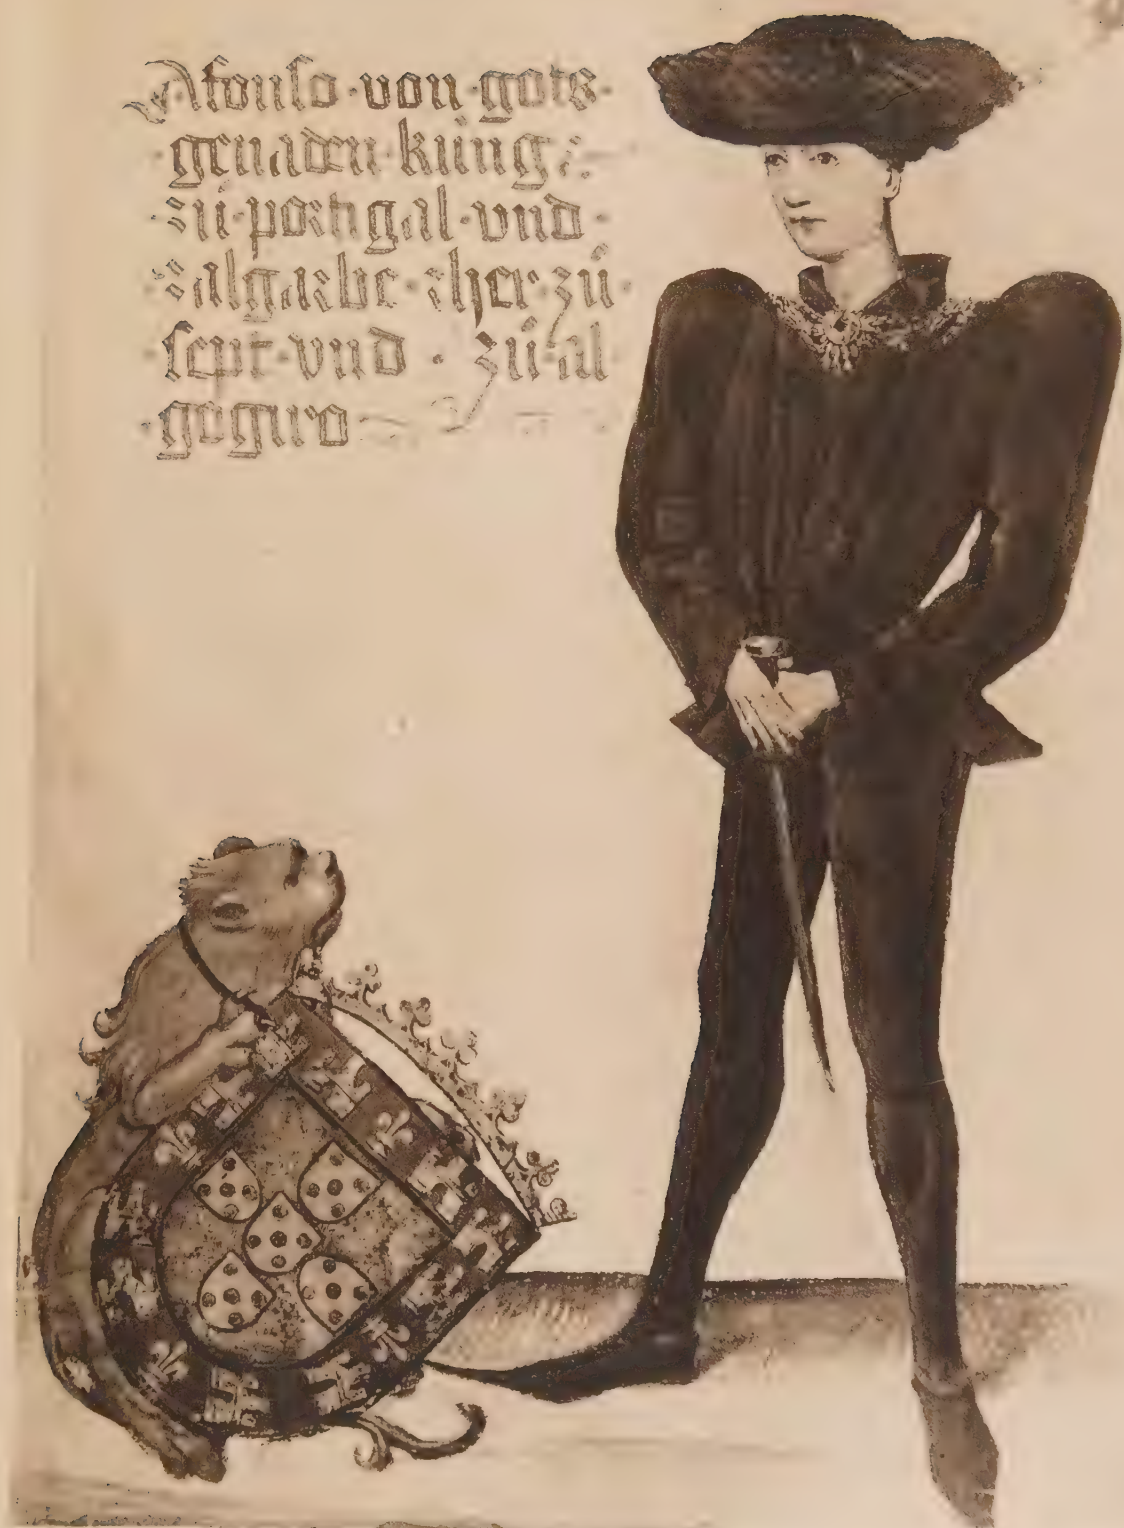 Afonso·von·gots·
·genaden·küng·
·zü·portigal·vnd·
·zalgarbe·vher·zü·
·sept·vnd·zü·al
·gogiro